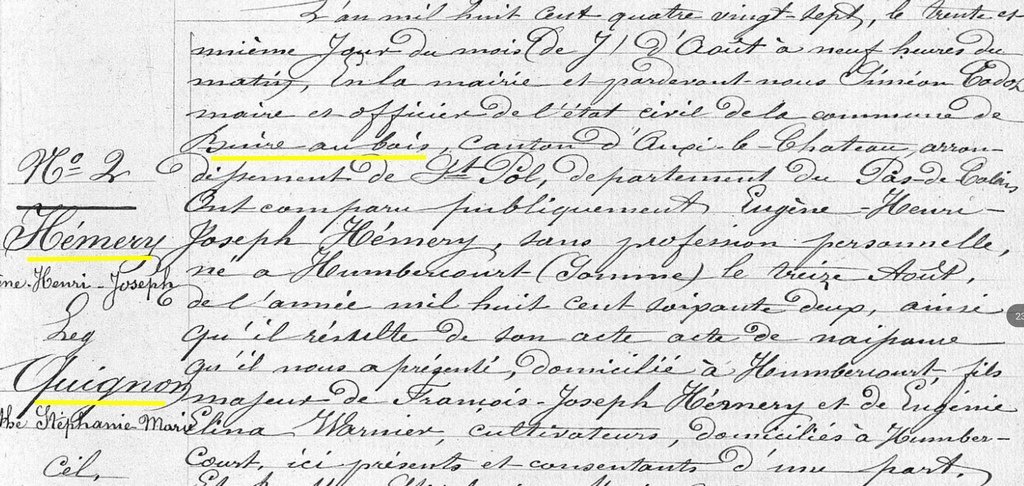 L'an mil huit cent quatre vingt-sept, le trente et
unième Jour du mois de d'Août à neuf heures du
matin, En la mairie et pardevant-nous Siméon
maire et officier de l'état civil de la commune de
Buire au bois, canton d'Auxi-le-Chateau, arron-
dissement de St Pol, département du Pas-de-Calais
Ont comparu publiquement Eugène-Henri-
Joseph Hémery, sans profession personnelle,
né à Humbercourt (Somme) le treize Août,
de l'année mil huit cent soixante deux, ainsi
qu'il résulte de son acte acte de naissance
qu'il nous a présenté, domicilié à Humbercourt, fils
majeur de François-Joseph Hémery et de Eugénie
Elina Warnier, cultivateurs, domiciliés à Humber-
court, ici présents et consentants d'une part.
No 2
Hémery
ène-Henri-Joseph
Quignon
Stéphanie Marie
Cél,
23